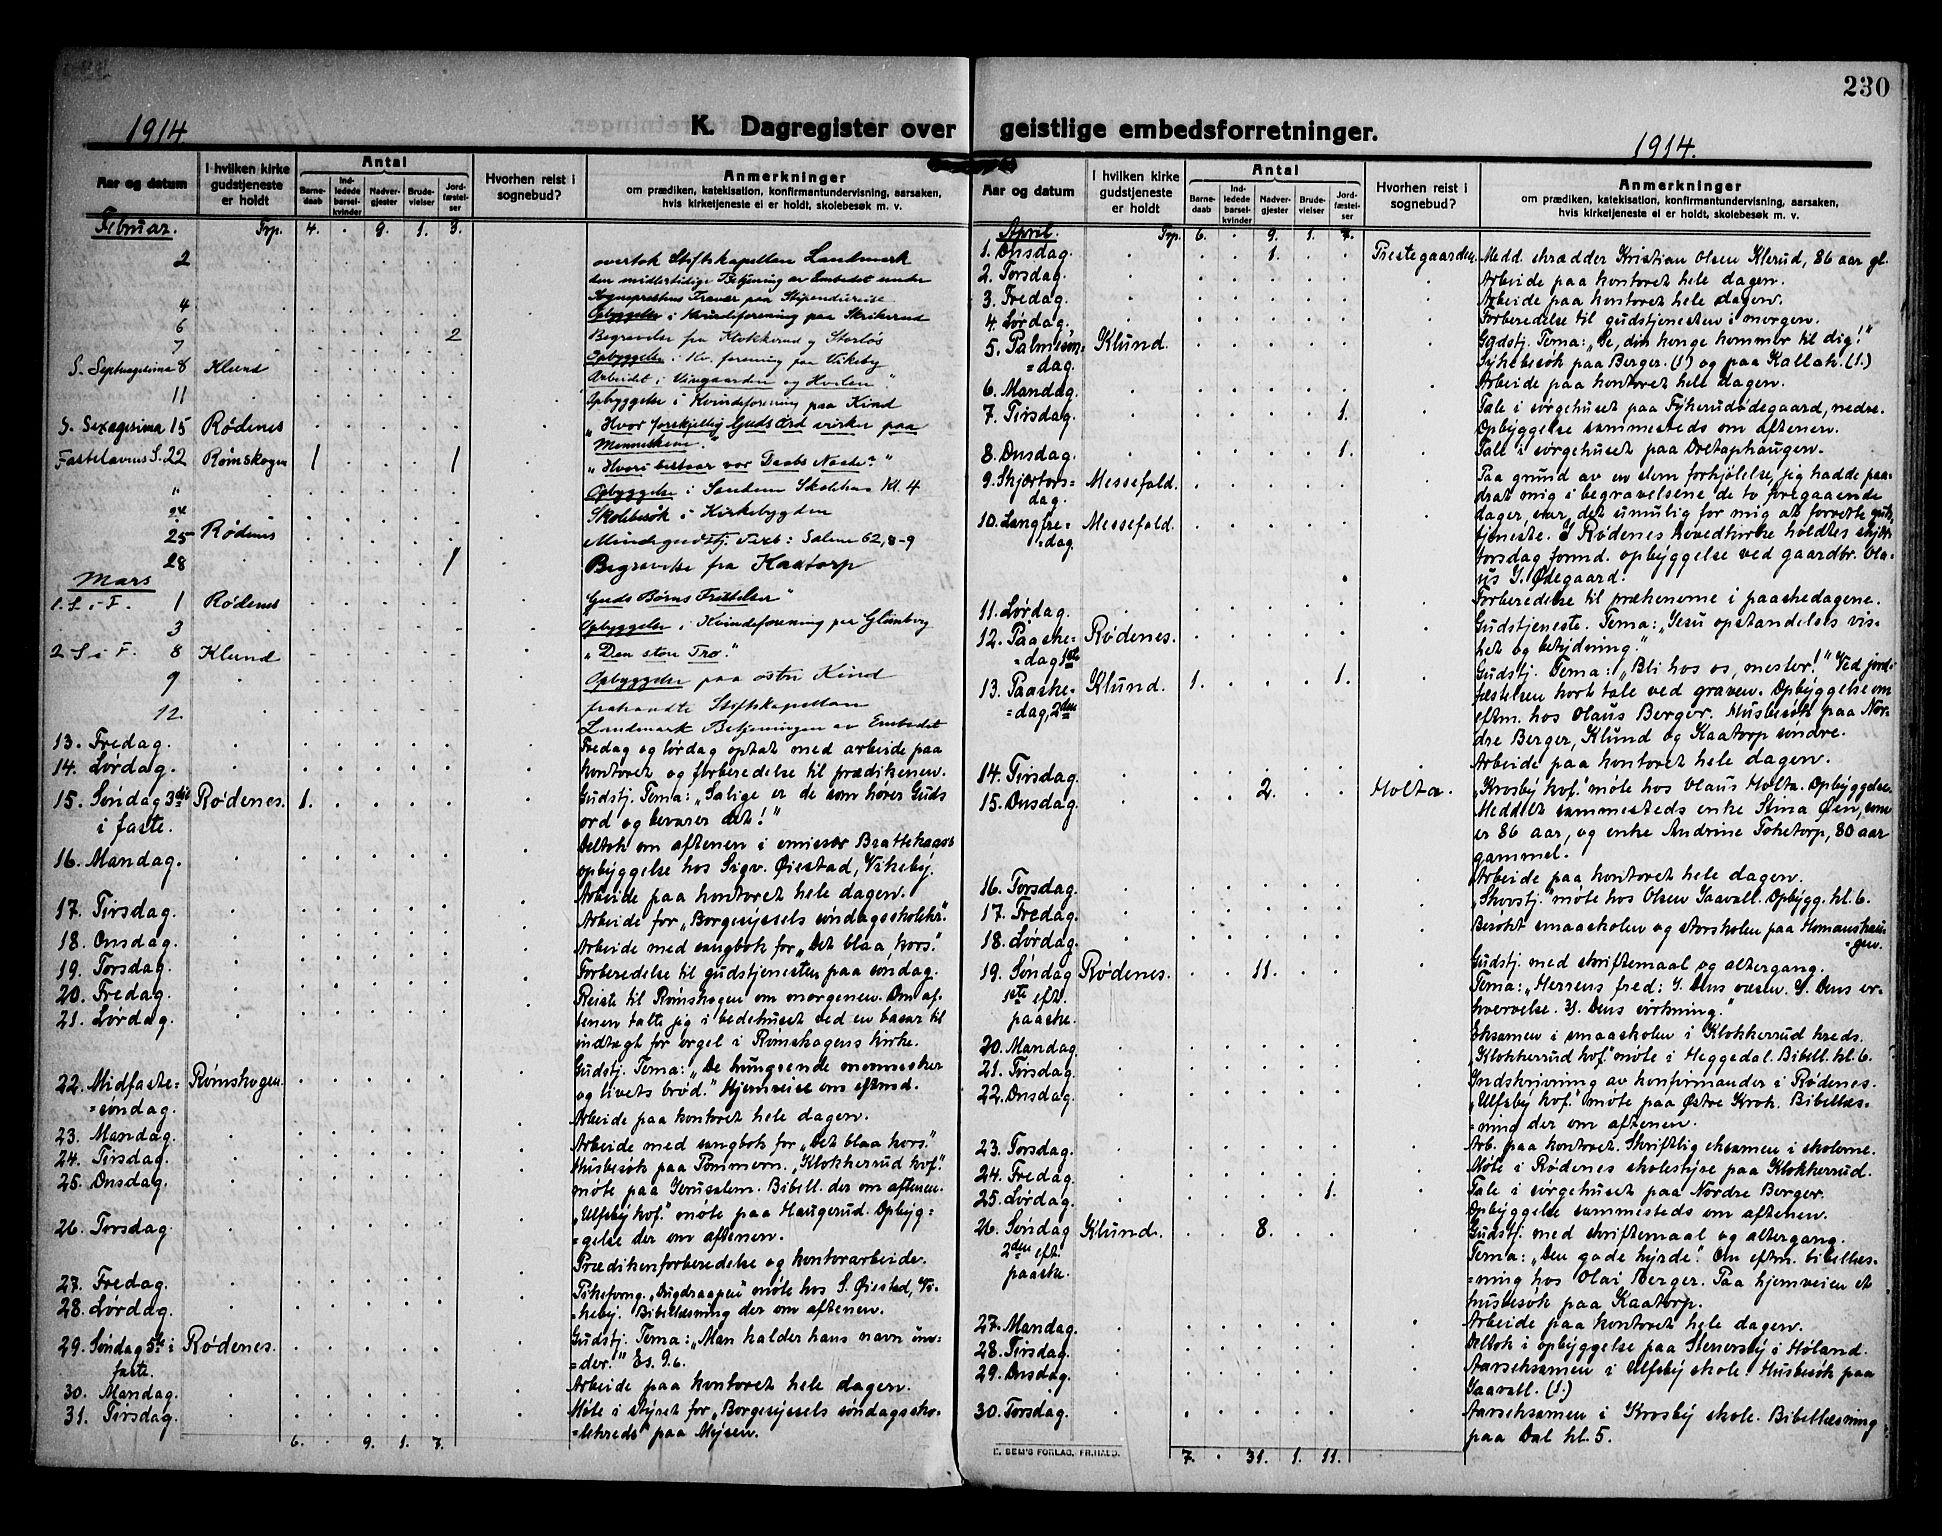 230
1914.
K. Dagregister over geistlige embedsforretninger.
1914.
Aar og datum
I hvilken kirke gudstjeneste er holdt
Antal
Barnedaab
Indledede barselkvinder
Nadvergjester
Brudevielser
Jordfæstelser
Hvorhen reist i sognebud?
Anmerkninger
om prædiken, katekisation, konfirmantundervisning, aarsaken,
hvis kirketjeneste ei er holdt, skolebesøk m. v.
Februar. Trp. 4. . 9. 1. 3.
2 overtok Stiftskapellan Landmark
den midlertidige Betjening av Embedet under
Sogneprestens Fravær paa Stipendiereise
4 Opbyggelse i Kvindeforening paa Skikerud
6 2 Begravelse fra Klokkerud og Storløs
7 Opbyggelse i Kv. forening paa Vikeby
S. Septuagesima 8 Klund Arbeidet i Vingaarden og Hvilen"
11 Opbyggelse i Kvindeforening paa Kind
S. Sexagesima 15 Rødenes „Hvor forskjellig Guds Ord virker paa
Menneskene."
Fastelavns S. 22 Rømskogen 1 1 „Hvori bestaar vor Daabs Naade?"
" Opbyggelse i Sandem Skolehus Kl. 4
24 Skolebesøk i Kirkebygden
25 Rødenes Mindegudstj. Text: Salme 62,8-9
28 1 Begravelse fra Kaatorp
Mars
1. S. i F. 1 Rødenes Guds Børns Fristelser"
3 Opbyggelse i Kvindeforening paa Glimberg
2 S i F. 8 Klund „Den store Tro."
9 Opbyggelse paa østre Kind
12. fratraadte Stiftskapellan
Landmark Betjeningen av Embedet
13. Fredag. Fredag og lørdag optat med arbeide paa
14. Lørdag. kontoret og forberedelse til prædikenen.
15. Søndag 3die i faste. Rødenes. 1. Gudstj. Tema: „Salige er de som hører Guds
ord og bevarer det!"
16. Mandag. Deltok om aftenen i emissær Brattehagas
opbyggelse hos Sigv. Øiestad, Vikeby.
17. Tirsdag. Arbeide paa kontoret hele dagen.
18. Onsdag. Arbeide for „Borgesyssels søndagsskolekr."
19. Torsdag. Arbeide med sangbok for „Det blaa kors."
20. Fredag. Forberedelse til gudstjenesten paa søndag.
21. Lørdag. Reiste til Rømskogen om morgenen. Om aftenen
talte jeg i bedehuset ved en basar til
indtægt for orgel i Rømskogens kirke.
22. Midfaste=
=søndag. Rømskogen. Gudstj. Tema: „De hungrende mennesker
og livets brød." Hjemreise om eftmd.
23. Mandag. Arbeide paa kontoret hele dagen.
24. Tirsdag. Arbeide med sangbok for „Det blaa kors."
25. Onsdag. Husbesøk paa Pommern. „Klokkerrud kof."
møte paa Jerusalem. Bibell. der om aftenen.
26. Torsdag „Ulfsby kof." møte paa Haugerud. Opbyg=
=gelse der om aftenen.
27. Fredag. Prædikenforberedelse og kontorarbeide.
28. Lørdag. Pikeforng. „Dugdraapen" møte hos S. Øiestad, Vi=
=keby. Bibellæsning der om aftenen.
29. Søndag 5te i faste. Rødenes. Gudstj. Tema: „Man kalder hans navn un=
=der." Es. 9.6.
30. Mandag. Arbeide paa kontoret hele dagen.
31. Tirsdag. Møte i styret for „Borgesyssels søndagssko=
=lekreds" paa Mysen.
6. . 9. 1. 7.
Aar og datum
I hvilken kirke gudstjeneste er holdt
Antal
Barnedaab
Indledede barselkvinder
Nadvergjester
Brudevielser
Jordfæstelser
Hvorhen reist i sognebud?
Anmerkninger
om prædiken, katekisation, konfirmantundervisning, aarsaken,
hvis kirketjeneste ei er holdt, skolebesøk m. v.
April. Trp. 6. . 9. 1. 7.
1. Onsdag. 1. Prestegaarden. Medd. skrædder Kristian Olsen Klerud, 86 aar gl.
2. Torsdag. Arbeide paa kontoret hele dagen.
3. Fredag. Arbeide paa kontoret hele dagen.
4. Lørdag. Forberedelse til gudstjenesten i morgen.
5. Palmesøn=
=dag. Klund. Gudstj. Tema: „Se, din konge kommer til dig!"
Sykebesøk paa Berger. (1) og paa Kallak. (1.)
6. Mandag. Arbeide paa kontoret hele dagen.
7. Tirsdag. 1. Tale i sørgehuset paa Fykerudødegaard, nedre.
Opbyggelse sammesteds om aftenen.
8. Onsdag. 1. Tale i sørgehuset paa Dretaphaugen.
9. Skjærtors=
dag. Messefald. Paa grund av en slem forkjølelse, jeg hadde paa-
drat mig i begravelsene de to foregaaende
10. Langfre=
=dag. Messefald. dager, var det umulig for mig at forrette guds=
tjeneste. I Rødenes hovedkirke holdtes skjær=
torsdag formd. opbyggelse ved gaardbr. Ola=
us I. Ødegaard.
11. Lørdag. Forberedelse til prækenerne i paaskedagene.
12. Paaske=
=dag 1ste Rødenes. Gudstjeneste. Tema: „Jesu opstandelses vis=
het og betydning."
13. Paaske=
=dag, 2den Klund. 1. 1. Gudstj. Tema: „Bli hos os, mester!" Ved jord=
fæstelsen kort tale ved graven. Opbyggelse om
eftm. hos Olaus Berger. Husbesøk paa Nor=
dre Berger, Klund og Kaatorp søndre.
14. Tirsdag. Arbeide paa kontoret hele dagen.
15. Onsdag. 2. Holta. „Krosby kof." møte hos Olaus Holta. Opbyggelse.
Meddelt sammesteds enke Stina Øien, som
er 86 aar, og enke Andrine Toketorp, 80 aar
gammel.
16. Torsdag. Arbeide paa kontoret hele dagen.
17. Fredag. „Skovstj." møte hos Olsen Taavall. Opbygg. kl. 6.
18. Lørdag. Besøkt smaaskolen og storskolen paa Homanshau=
=gen.
19. Søndag 1ste eft. paaske. Rødenes. 11. Gudstj. med skriftemaal og altergang.
Tema: „Herrens fred: 1. Dens væsen. 2. Dens er=
hvervelse. 3. Dens virkning."
20. Mandag. Eksamen i smaaskolen i Klokkerrud kreds.
21. Tirsdag. „Klokkerrud kof." møte i Heggedal. Bibell. kl. 6.
22. Onsdag. Indskrivning av konfirmander i Rødenes.
„Ulfsby kof." møte paa Østre Krok. Bibellæs=
=ning der om aftenen.
23. Torsdag. Arb. paa kontoret. Skriftlig eksamen i skolerne.
24. Fredag. Møte i Rødenes skolestyre paa Klokkerrud.
25. Lørdag. 1. Tale i sørgehuset paa Nordre Berger.
Opbyggelse sammesteds om aftenen.
26. Søndag 2den eft. paaske. Klund. 8. Gudstj. med skriftemaal og altergang.
Tema: „Den gode hyrde". Om eftm. bibellæs=
=ning hos Olai Berger. Paa hjemveien et
husbesøk paa Kaatorp.
27. Mandag. Arbeide paa kontoret hele dagen.
28. Tirsdag. Deltok i opbyggelse paa Stenersby i Høland.
29. Onsdag. Aarseksamen i Ulfsby skole. Husbesøk paa
Taavall. (1.)
30. Torsdag. Aarseksamen i Krosby skole. Bibellæsning
paa Dal kl. 5.
E. SEM'S FORLAG, FR.HALD.
7. . 31. 1. 11.